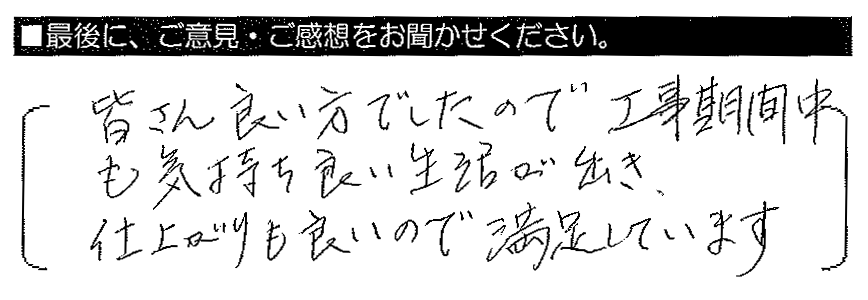 ■最後に、ご意見・ご感想をお聞かせください。
皆さん良い方でしたので工事期間中
も気持ち良い生活が出き、
仕上がりも良いので満足しています